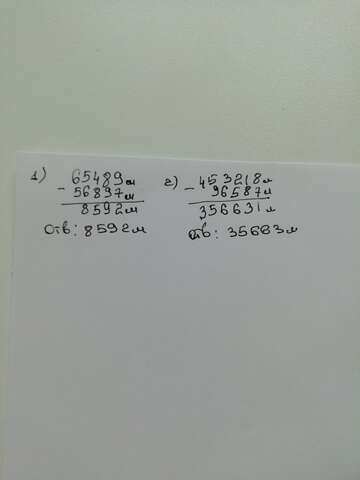 1) 65489м
- 56897м
8592м
Отв: 8592м
2) 453218м
- 96587м
356631м
Отв: 35663м